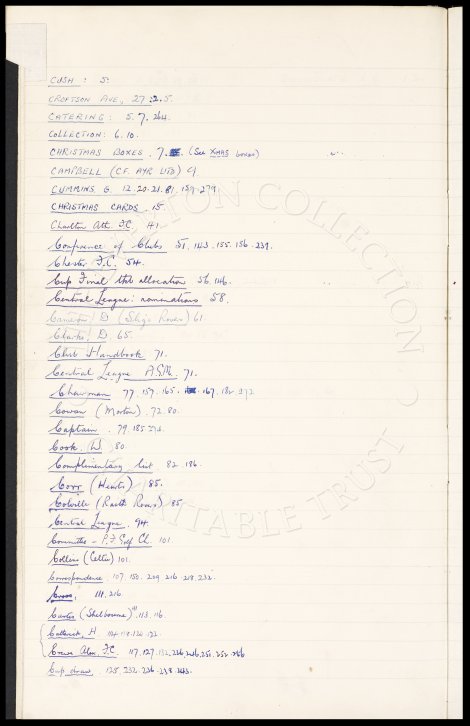 CUSH : 5.
CROFTSON AVE, 27 : 2.5.
CATERING : 5. 7. 264.
COLLECTION : 6. 10.
CHRISTMAS BOXES. 7. (See XMAS boxes)
CAMPBELL (CF. AYR UTD) 9
CUMMINS G. 12. 20. 21. 81. 159. 279.
CHRISTMAS CARDS. 15.
Charlton Ath. F.C. 41.
Conference of Clubs 51. 143. 155. 156. 239.
Chester F.C. 54.
Cup Final tkt allocation 56. 146.
Central League: nominations 58.
Cameron, D (Sligo Rovers) 61
Clarke, D. 65.
Club Handbook 71.
Central League A.G.M. 71.
Chairman 77. 157. 165. 167. 182. 272
Cowan (Morton) 72. 80.
Captain. 79. 185. 273.
Cook, W. 80
Complimentary list 82. 186.
Corr (Hearts) 85.
Colville (Raith Rovers) 85.
Central League. 94.
Committee - P.F. Golf Ch 101.
Collins (Celtic) 101.
Correspondence. 107. 150. 209. 216. 218. 232.
Cross, 111. 216.
Carter (Shelbourne) 111. 113. 116.
Catterick, H. 114. 118. 120. 122.
Crewe Alex. F.C. 117. 127. 152. 236. 246. 251. 252. 256.
Cup draw. 125. 232. 236. 238. 243.
EVERTON COLLECTION
CHARITABLE TRUST